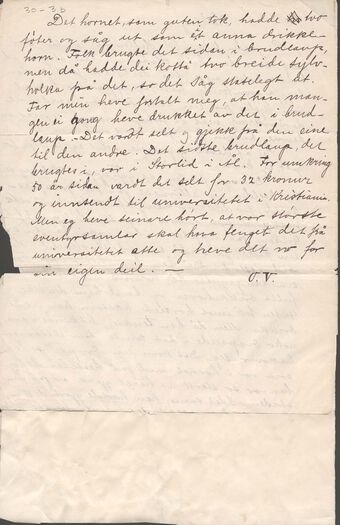 30-3b
Det hornet, som guten tok, hadde tvo
føter og såg ut som eit anna drikke-
horn. Folk brugte det sidan i brudlaup,
men då hadde dei kosta tvo breide sylv-
holka på det, so det såg stateleg ut.
Far min heve fortalt meg, at han man-
gen ei gong heve drukket av det i brud-
laup. – Det vardt selt og gjekk frå den eine
til den andre. Det siste brudlaup, det
brugtes i, var i Storlid i Ål. For umkring
50 år sidan vardt det selt for 32 kronur
og innsendt til universitetet i Kristiania.
Men eg heve seinare høyrt, at vor største
eventyrsamlar skal hava fenget det frå
universitetet atte og heve det no for
sin eigen deil. —
O. V.